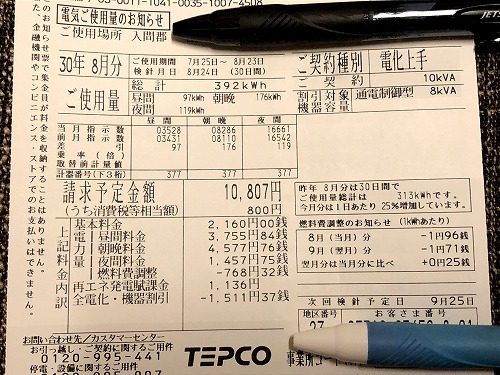 03-0011-1041-0035-1007-4508
電気ご使用量のお知らせ
ご使用場所 入間郡
JET
30年 8月分
ご使用期間 7月25日～ 8月23日
検針月日 8月24日 (30日間)
ご契約種別 電化上手
ご契約 10kVA
割引対象機器容量 通電制御型 8kVA
ご使用量
総計 392kWh
昼間 97kWh 朝晩 176kWh
夜間 119kWh
昼間 朝晩 夜間
当月指示数 03528 08286 16661
前月指示数 03431 08110 16542
差引 97 176 119
乗率(倍)
取替前計量値
計器番号(下3桁) 377 377 377
請求予定金額 10,807円
(うち消費税等相当額) 800円
上記料金内訳
基本料金 2,160円00銭
電力量料金
昼間料金 3,755円84銭
朝晩料金 4,577円76銭
夜間料金 1,457円75銭
燃料費調整 -768円32銭
再エネ発電賦課金 1,136円
全電化・機器割引 -1,511円37銭
昨年 8月分は30日間で
ご使用量総計は 313kWhです。
今月分は1日あたり 25%増加しています。
燃料費調整のお知らせ (1kWhあたり)
8月(当月)分 -1円96銭
9月(翌月)分 -1円71銭
翌月分は当月分に比べ +0円25銭
次回検針予定日 9月25日
地区番号 お客さま番号
27
お問い合わせ先/カスタマーセンター
お引っ越し・ご契約に関するご用件
0120-995-441
停電・設備に関するご用件
TEPCO
事業所コード
のお知らせ票で集金員が料金を収納することはありません。
た、金融機関やコンビニエンス・ストアでのお支払いはできません。